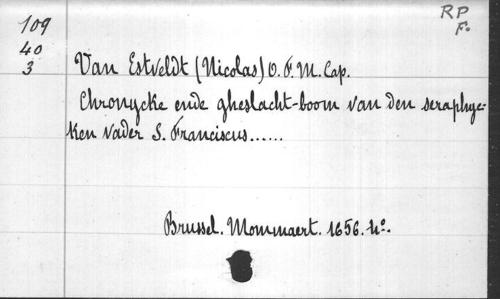 RP
F.
109
40
3
Van Estveldt (Nicolas) O.F.M. Cap.
Chronycke ende gheslacht-boom van den seraphyc-
ken vader S. Franciscus......
Brussel. Mommaert. 1656. 4°.